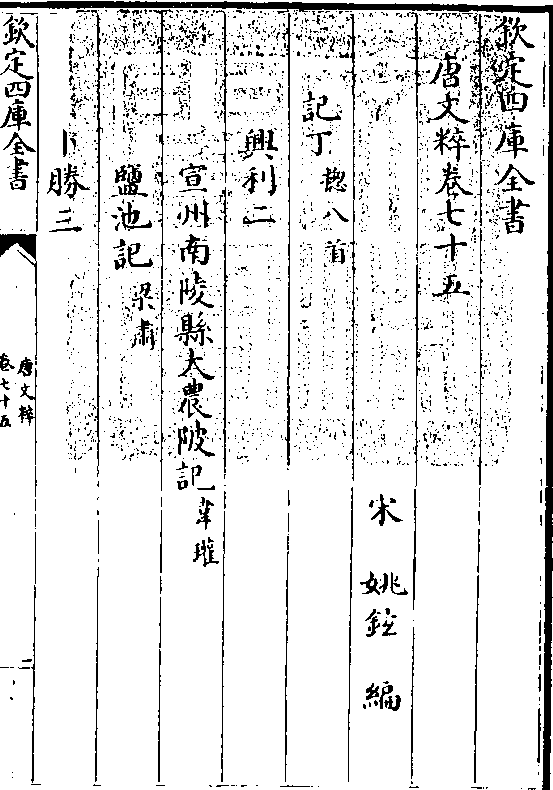 欽定四庫全書
唐文粹卷七十五
宋 姚鉉 編
記丁 揔八首
興利二
宣州南陵縣大農陂記 韋瓘
鹽池記 梁肅
卜勝三
欽定四庫全書
唐文粹
卷七十五